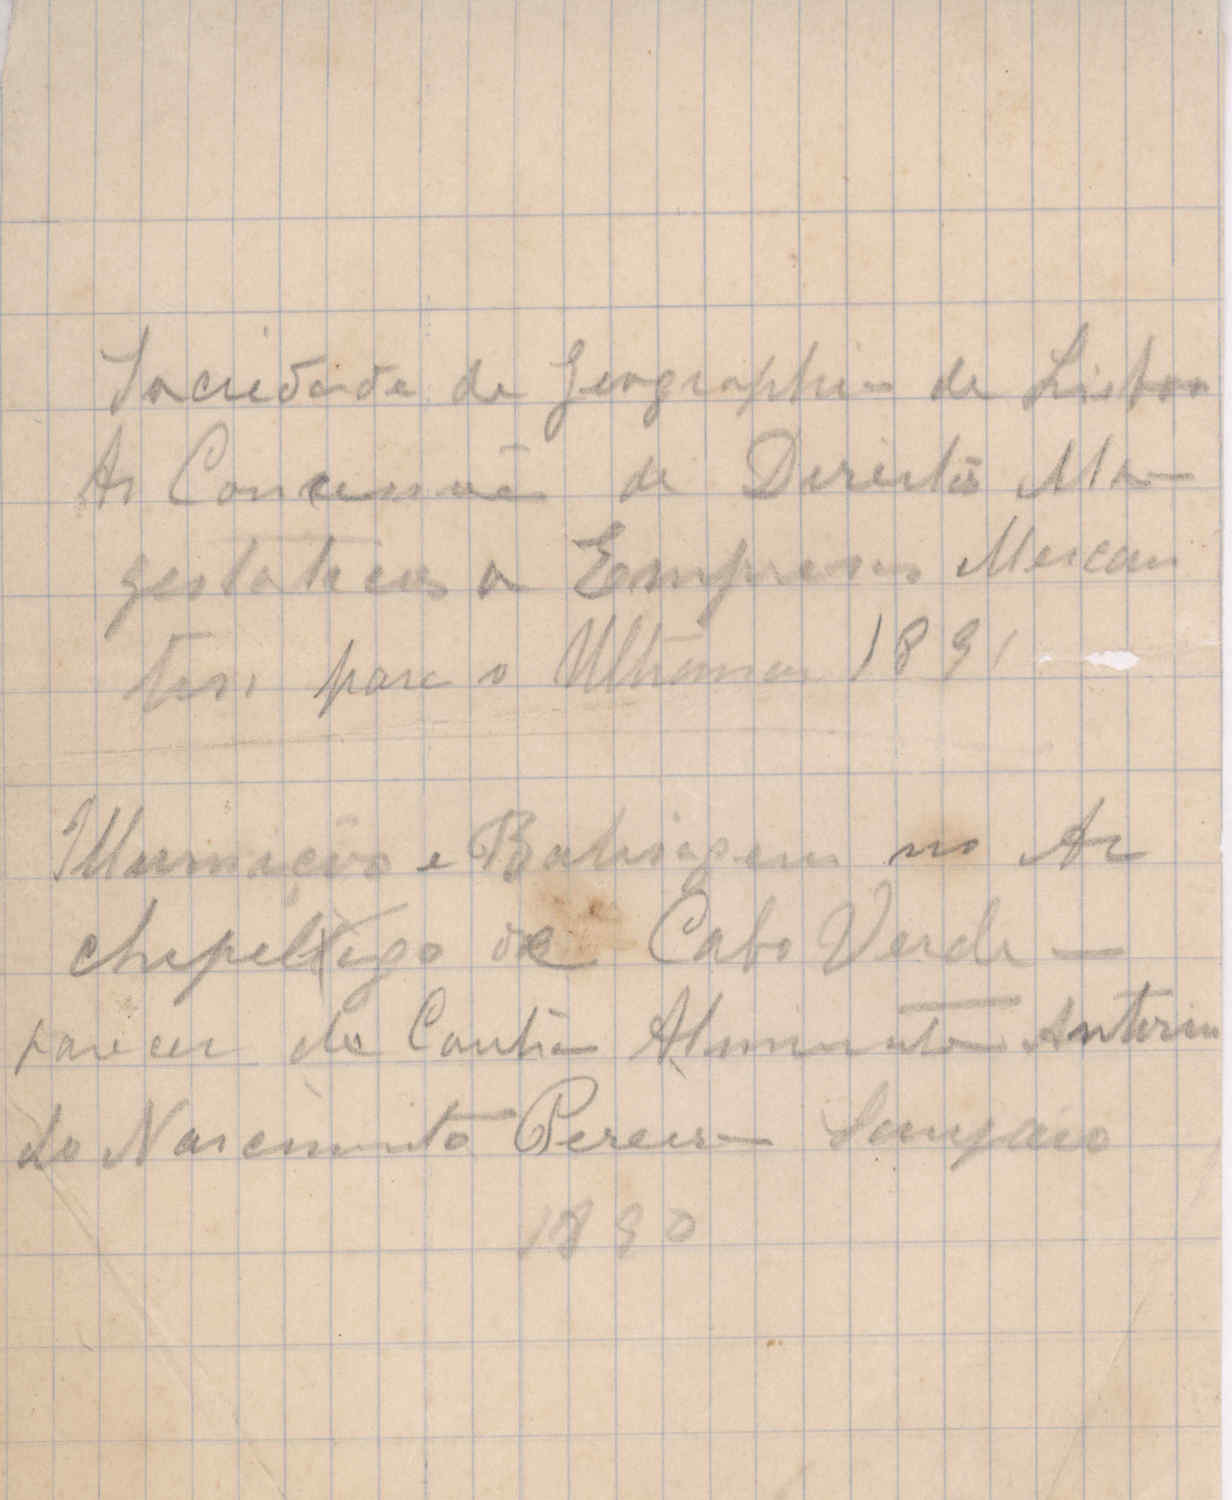 Sociedade de Geographia de Lisboa
As Concessões de Direitos Ma-
gestaticos a Empresas Mercan
tes para o Ultramar 1891
Illuminação e Balisagem no Ar
chipelago de Cabo Verde -
parecer do Contra Almirante Antonio
do Nascimento Pereira Sampaio
1890